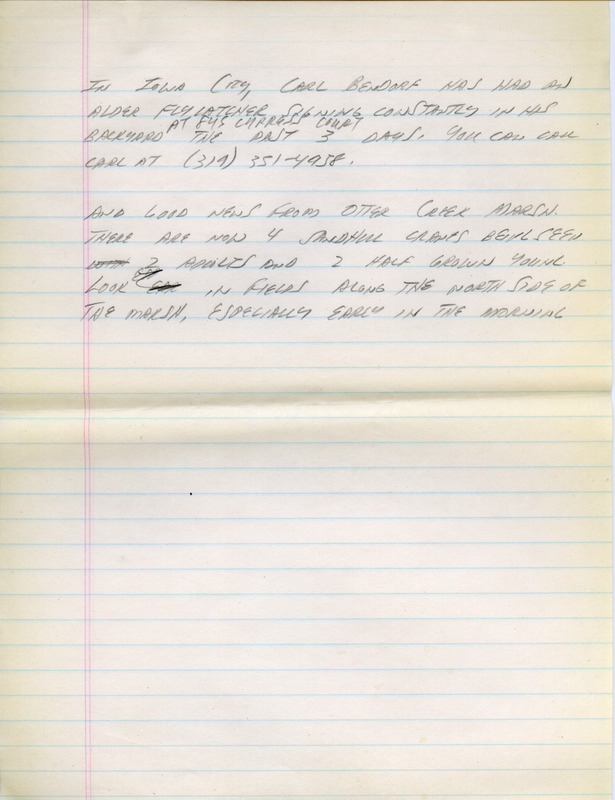 IN IOWA CITY, CARL BENDORF HAS HAD AN
ALDER FLYCATCHER SIGNING CONSTANTLY IN HIS
AT 845 CYPRESS COURT
BACKYARD THE PAST 3 DAYS. YOU CAN CALL
CARL AT (319) 351-4958.
AND GOOD NEWS FROM OTTER CREEK MARSH.
THERE ARE NOW 4 SANDHILL CRANES BEING SEEN
2 ADULTS AND 2 HALF GROWN YOUNG
LOOK IN FIELDS ALONG THE NORTH SIDE OF
THE MARSH, ESPECIALLY EARLY IN THE MORNING